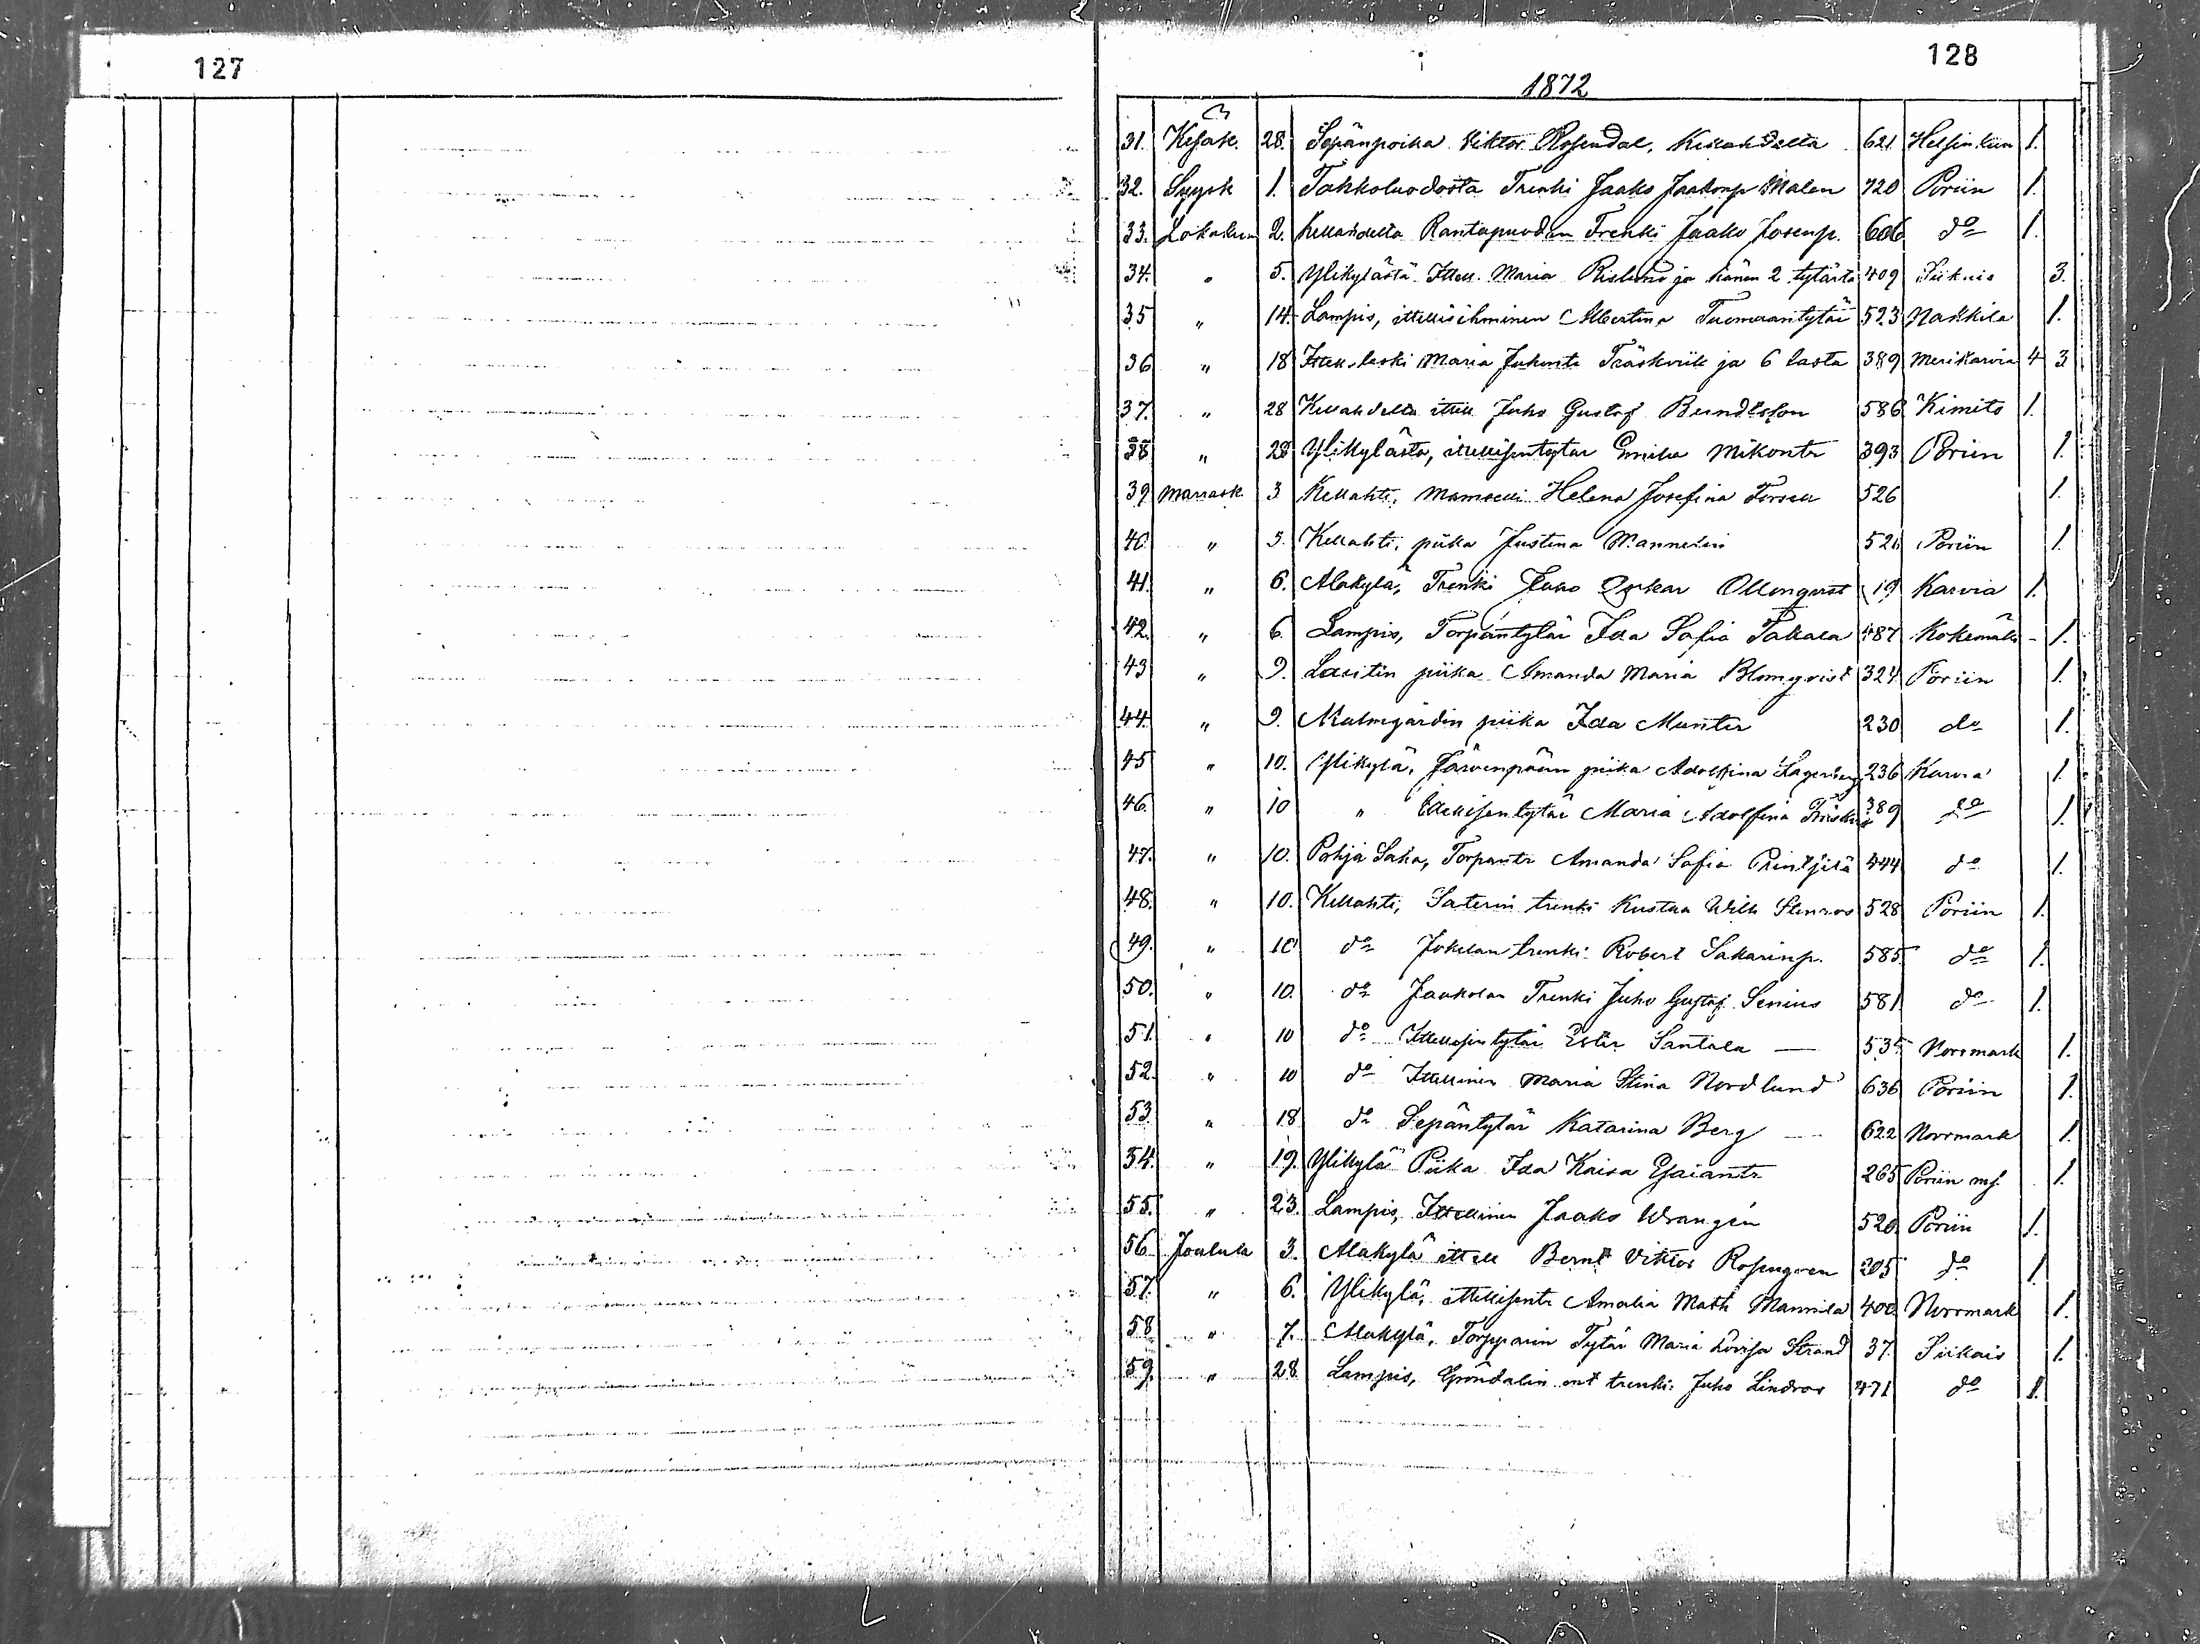 127
128
1872
31. Kesäk. 28. Sepänpoika Viktor Rosendal, Kellahdelta 621 Helsinkiin 1.
32. Syysk 1. Tahkoluodosta Trenki Jaako Jaakonp Malen 720 Poriin 1.
33. Lokakuu 2. Kellahdelta Rantapuodin Trenki Jaako Josenp. 606 do 1.
34. " 5. Ylikylästä Ittell. Maria Rislund ja hänen 2 tytärtä 409 Siikais 3.
35 " 14. Lampis, ittellisihminen Albertina Tuomaantytär 523 Nakkila 1.
36 " 18 Ittell. leski Maria Juhontr Träskvik ja 6 lasta 389 Merikarvia 4 3
37. " 28 Kellahdelta ittell Juho Gustaf Berndtsson 586 Kimito 1.
38 " 28 Ylikylästä, ittellisentytär Emilia Mikontr 393 Poriin 1.
39 Marrask. 3 Kellahti, Mamselli Helena Josefina Forsell 526 1.
40 " 5. Kellahti, piika Justina Mannelin 521 Poriin 1.
41. " 6. Alakylä, Trenki Juho Oskar Ollonqvist 19 Karvia 1.
42. " 6. Lampis, Torpantytär Ida Sofia Takala 487 Kokemäki - 1.
43 " 9. Lasitin piika Amanda Maria Blomqvist 324 Poriin 1.
44. " 9. Malmgårdin piika Ida Munter 230 do 1.
45 " 10. Ylikylä, Järvenpään piika Adolfina Lagerberg 236 Karvia 1.
46. " 10 " Ittellisentytär Maria Adolfina 389 do 1.
47. " 10. Pohja Saha, Torpantr Amanda Sofia 444 do 1.
48. " 10. Kellahti, Saterin trenki Kustaa Wilh Stenroos 528 Poriin 1.
49. " 10 do Jokelan trenki Robert Sakarinp. 585 do 1.
50. " 10. do Jaakolan Trenki Juho Gustaf Senius 581 do 1.
51. " 10 do Ittellisentytär Ester Santala — 535 Norrmark 1.
52. " 10 do Ittellinen Maria Stina Nordlund 636 Poriin 1.
53. " 18 do Sepäntytär Katarina Berg — 622 Norrmark 1.
54. " 19. Ylikylä Piika Ida Kaisa Esaiantr 265 Poriin msk. 1.
55. " 23. Lampis, Ittellinen Jaako Wrangén 520 Poriin 1.
56. Jouluk 3. Alakylä ittell Bernt Viktor Rosengren 205 do 1.
57. " 6. Ylikylä, ittellisentr Amalia Math Mannila 400 Norrmark 1.
58 " 7. Alakylä, Torpparin Tytär Maria Lovisa Strand 37 Siikais 1.
59. " 28 Lampis, Gröndalin ent trenki Juho Lindroos 471 do 1.